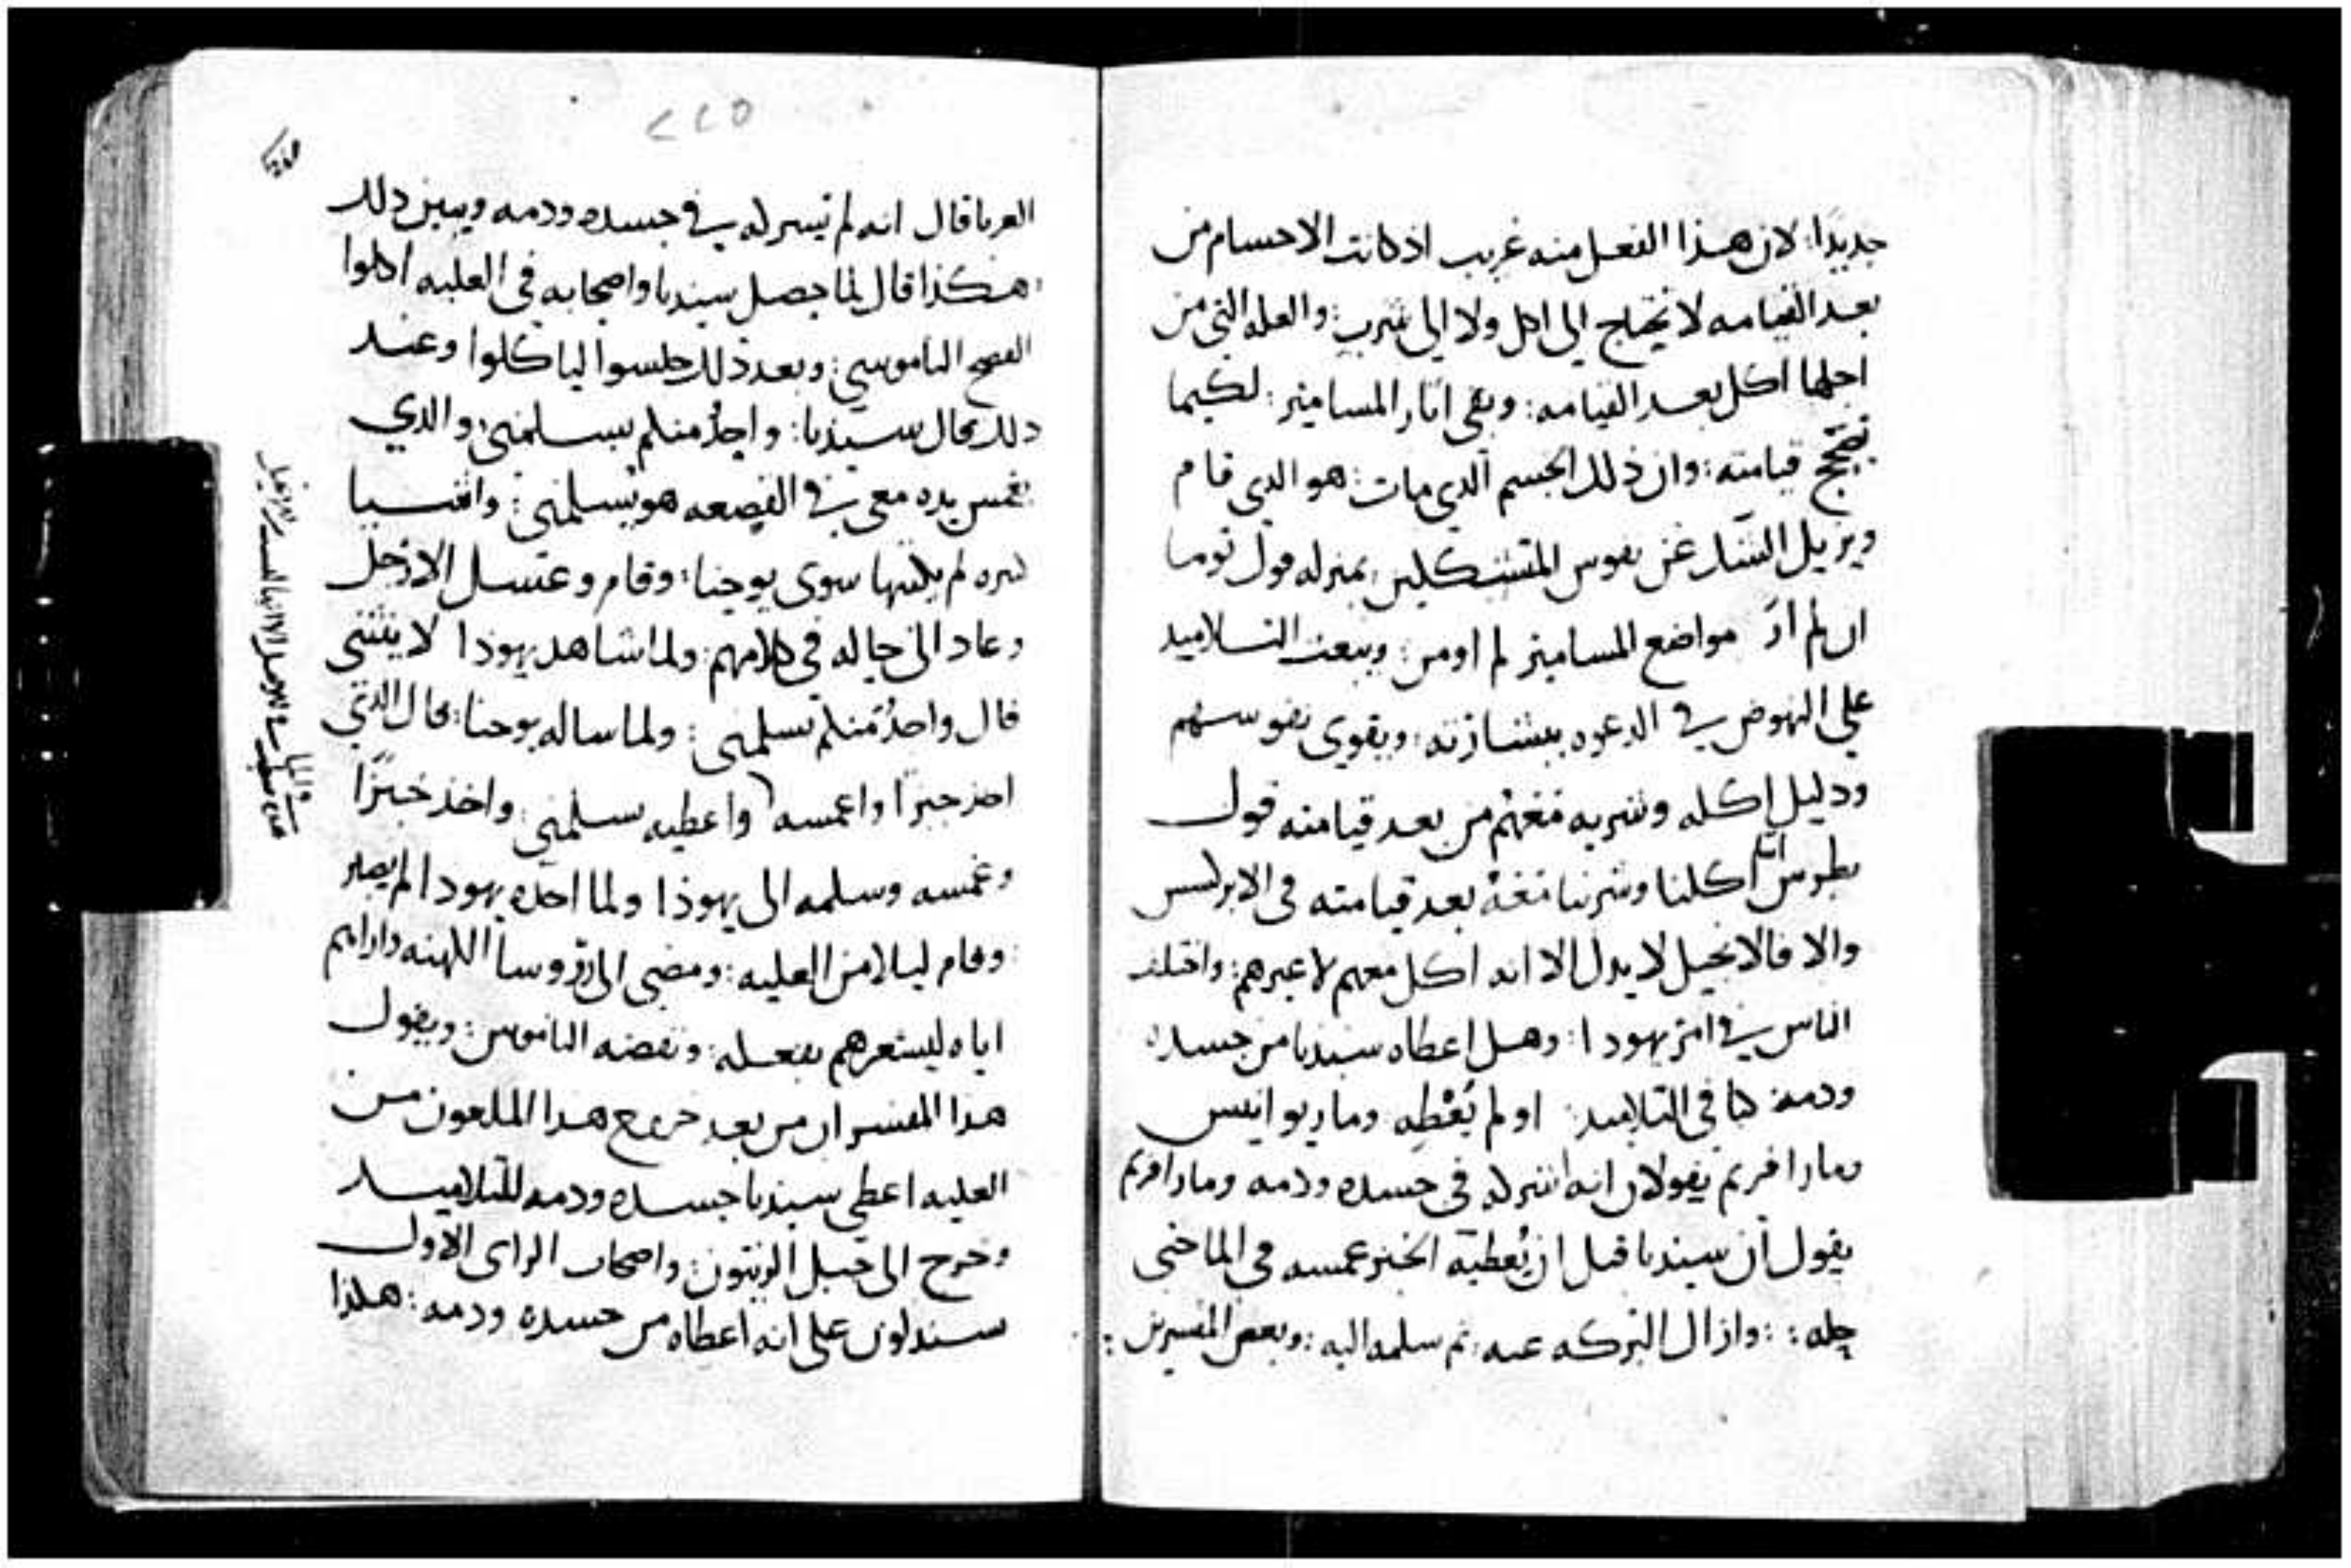 جديدًا: لان هذا الفعل منه غريب اذ كانت الاجسام من
بعد القيامه لا تحتاج الي اكل ولا الي شرب: والعله التي من
اجلها اكل بعد القيامه: وبقي اثار المسامير: لكيما
قيامته: وان ذلك الجسم الذي مات: هو الذي قام
ويزيل الشك عن نفوس المتشككين: بمنزله قول توما
ان لم ارَ مواضع المسامير لم اومن: ويبعث التلاميد
علي النهوض في الدعوه ببشارته: ويقوي نفوسهم
ودليل اكله وشربه معهم من بعد قيامته قول
بطرس اننا اكلنا وشربنا معه بعد قيامته في الابركسس
والا فالانجيل لا يدل الا انه اكل معهم لا غيرهم: واختلف
الناس في امر يهودا: وهل اعطاه سيدنا من جسده
ودمه كباقي التلاميد: او لم يُعْطِه وماريوانيس
ومار افريم يقولان انه اشركه في جسده ودمه ومار افريم
يقول ان سيدنا قبل ان يُعطيه الخبز غمسه في الما حتي
حله: : وازال البركه عنه: ثم سلمه اليه: وبعض المفسرين:
٢٢٥
قال انه لم يشركه في جسده ودمه ويبين دلك
هكذا قال لما حصل سيدنا واصحابه في العليه اكلوا
الفصح الناموسي: وبعد ذلك جلسوا لياكلوا وعند
دلك قال سيدنا: واحدٌ منكم يسلمني: والدي
يغمس يده معي في القصعه هو يسلمني:
سره لم يكتبها سوى يوحنا: وقام وغسل الارجل
وعاد الي حاله في كلامهم: ولما شاهد يهودا لا ينثني
قال واحدٌ منكم يسلمني: ولما ساله يوحنا: قال الذي
اخذ خبزًا واغمسه واعطيه يسلمني: واخذ خبزًا
وغمسه وسلمه الى يهوذا ولما اخده يهودا لم يصبر
وقام ليلا من العليه: ومضي الي روسا الكهنه
اياه ليشعرهم بفعله: ونقضه الناموس: ويقول
هدا المفسر ان من بعد خروج هدا الملعون من
العليه اعطي سيدنا جسده ودمه للتلاميد
وخرج الى جبل الزيتون: واصحاب الراى الاول
يستدلون على انه اعطاه من جسده ودمه: هكذا